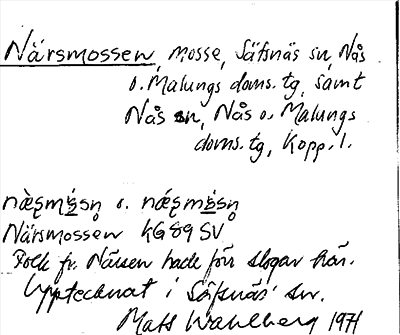 Närsmossen, mosse, Säfsnäs sn, Nås
o. Malungs doms. tg, samt
Nås sn, Nås o. Malungs
doms. tg, Kopp. l.
Närsmossen KG89 SV
Folk fr. Närsen hade förr slogar här.
Upptecknat i Säfsnäs sn.
Mats Wahlberg 1971